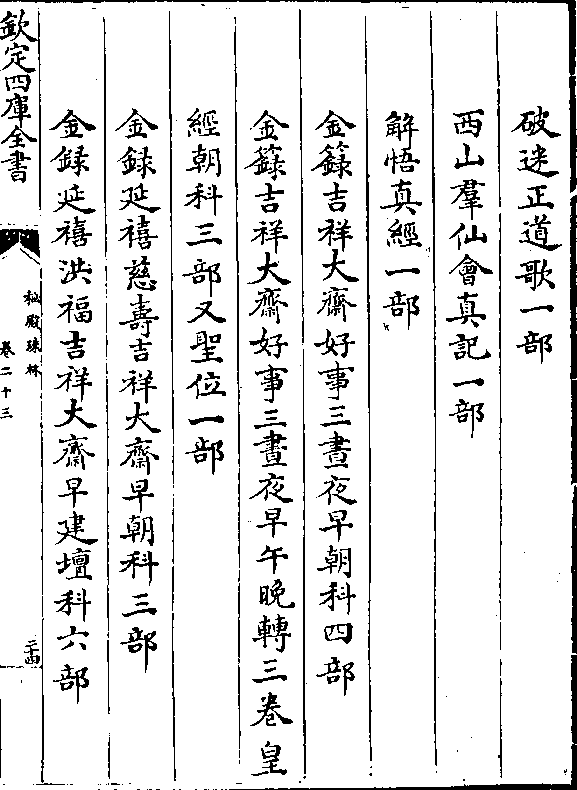 破迷正道歌一部
西山羣仙會真記一部
解悟真經一部
金籙吉祥大齋好事三晝夜早朝科四部
金籙吉祥大齋好事三晝夜早午晚轉三卷皇
經朝科三部又聖位一部
金録延禧慈壽吉祥大齋早朝科三部
金録延禧洪福吉祥大齋早建壇科六部
欽定四庫全書
秘殿珠林
卷二十三
二十四